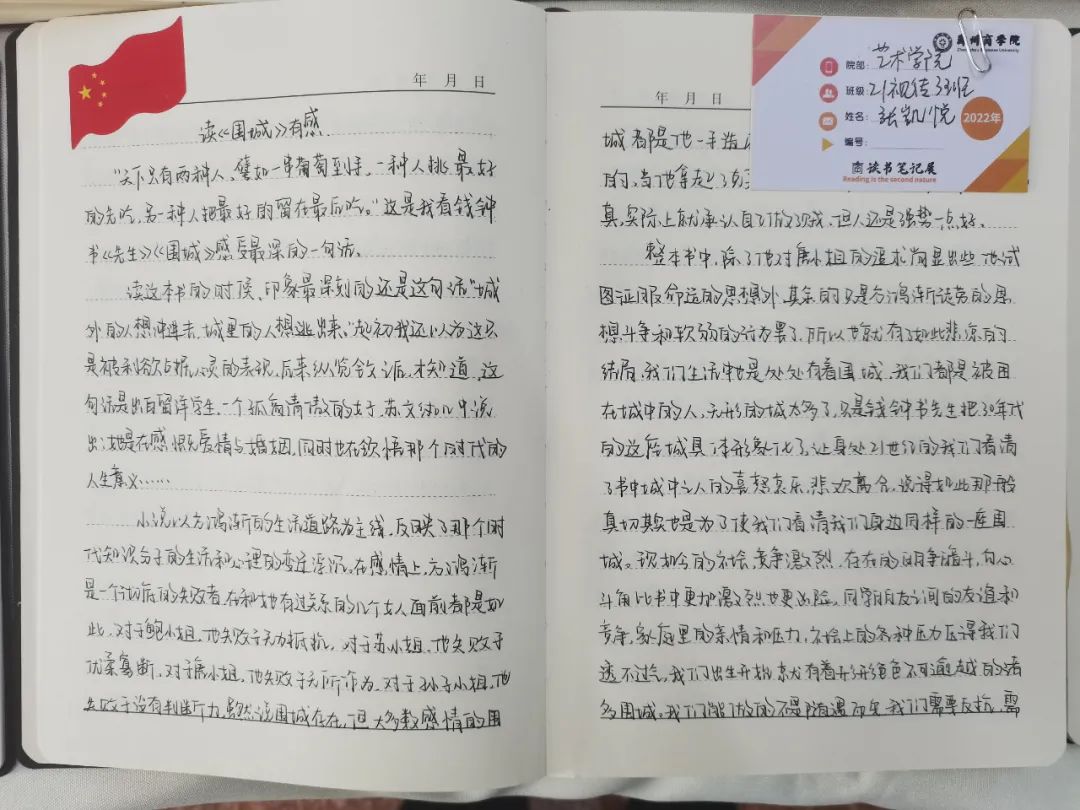 年 月 日
读《围城》有感
"天下只有两种人,譬如一串葡萄到手,一种人挑最好
的先吃,另一种人把最好的留在最后吃。"这是我看钱钟
书《先生》《围城》感受最深的一句话。
读这本书的时候,印象最深刻的还是这句话"城
外的人想冲进去,城里的人想逃出来。"起初我还以为这只
是被利欲占据心灵的表现,后来纵览全文后,才知道,这
句话是出自留洋学生,一个孤高清傲的女子,苏文纨口中说
出:她是在感慨爱情与婚姻,同时也在领悟那个时代的
人生意义……
小说以方鸿渐的生活道路为主线,反映了那个时
代知识分子的生活和心理的变迁浮沉。在感情上,方鸿渐
是一个彻底的失败者,在和他有过关系的几个女人面前都是如
此,对于鲍小姐,他失败于无力抵抗,对于苏小姐,他失败于
优柔寡断,对于唐小姐,他失败于无所作为,对于孙子小姐,他
失败于没有判断力,虽然说围城存在,但大多数感情的围
年 月 日
城都是他一手造
的,当他拿起了
真,实际上就承认自己做了,但人还是强势一点好。
整本书中,除了他对唐小姐的追求尚显出些他试
图征服命运的思想外,其余的只是方鸿渐徒劳的思
想斗争和软弱的行为罢了,所以也就有了如此悲凉的
结局,我们生活中也是处处有着围城,我们都是被困
在城中的人,无形的城太多了,只是钱钟书先生把30年代
的这座城具体形象化了,让身处21世纪的我们看清
了书中城中之人的喜怒哀乐,悲欢离合,说得如此那般
真切其实也是为了使我们看清我们身边同样的一座围
城。现如今的社会,竞争激烈,存在的明争暗斗,勾心
斗角比书中更加激烈也更凶险,同学朋友之间的友谊和
竞争,家庭里的亲情和压力,社会上的各种压力压得我们
透不过气,我们出生开始就有着形形色色不可逾越的诸
多围城,我们能做的不是随遇而安,我们需要反抗,需
郑州商学院
院部:艺术学院
班级:21视传3班
姓名:张凯悦
编号:
2022年
读书笔记展
Reading is the second nature